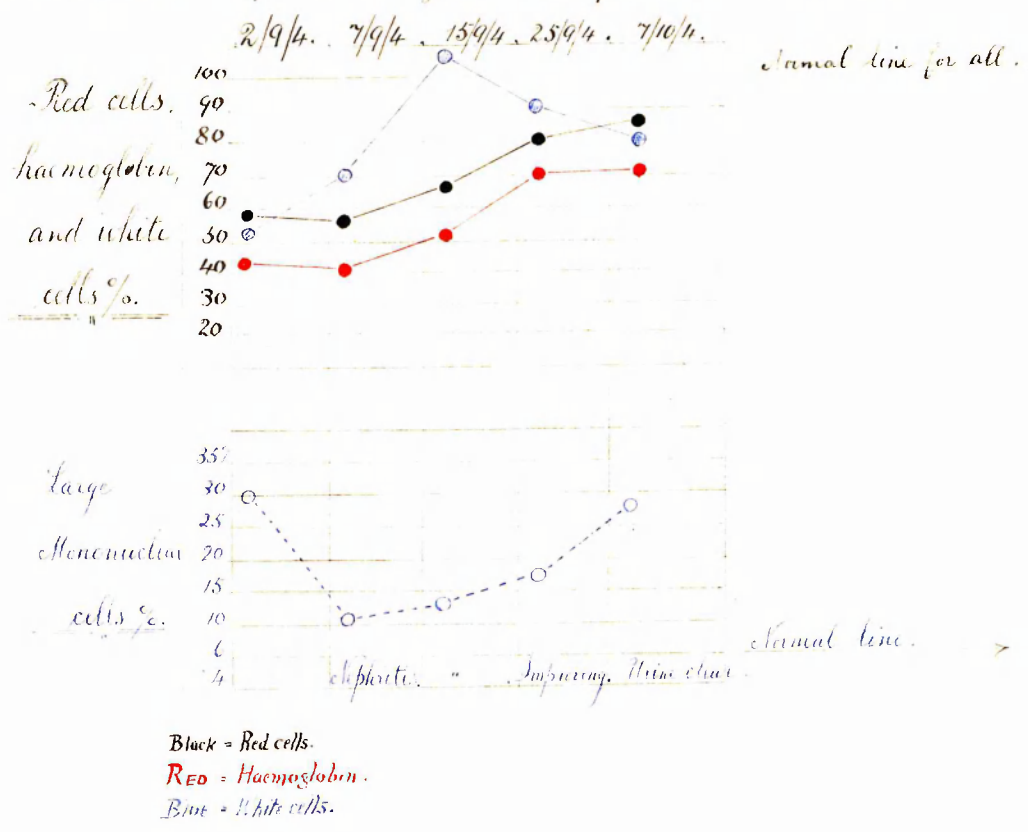 2/9/4. 7/9/4. 15/9/4. 25/9/4. 7/10/4.
Normal line for all.
Red cells,
haemoglobin,
and white
cells %.
100
90
80
70
60
50
40
30
20
Large
Mononuclear
cells %.
35%
30
25
20
15
10
6
4
Normal line.
Nephritis. " Improving. Urine clear.
Black = Red cells.
RED = Haemoglobin.
Blue = White cells.